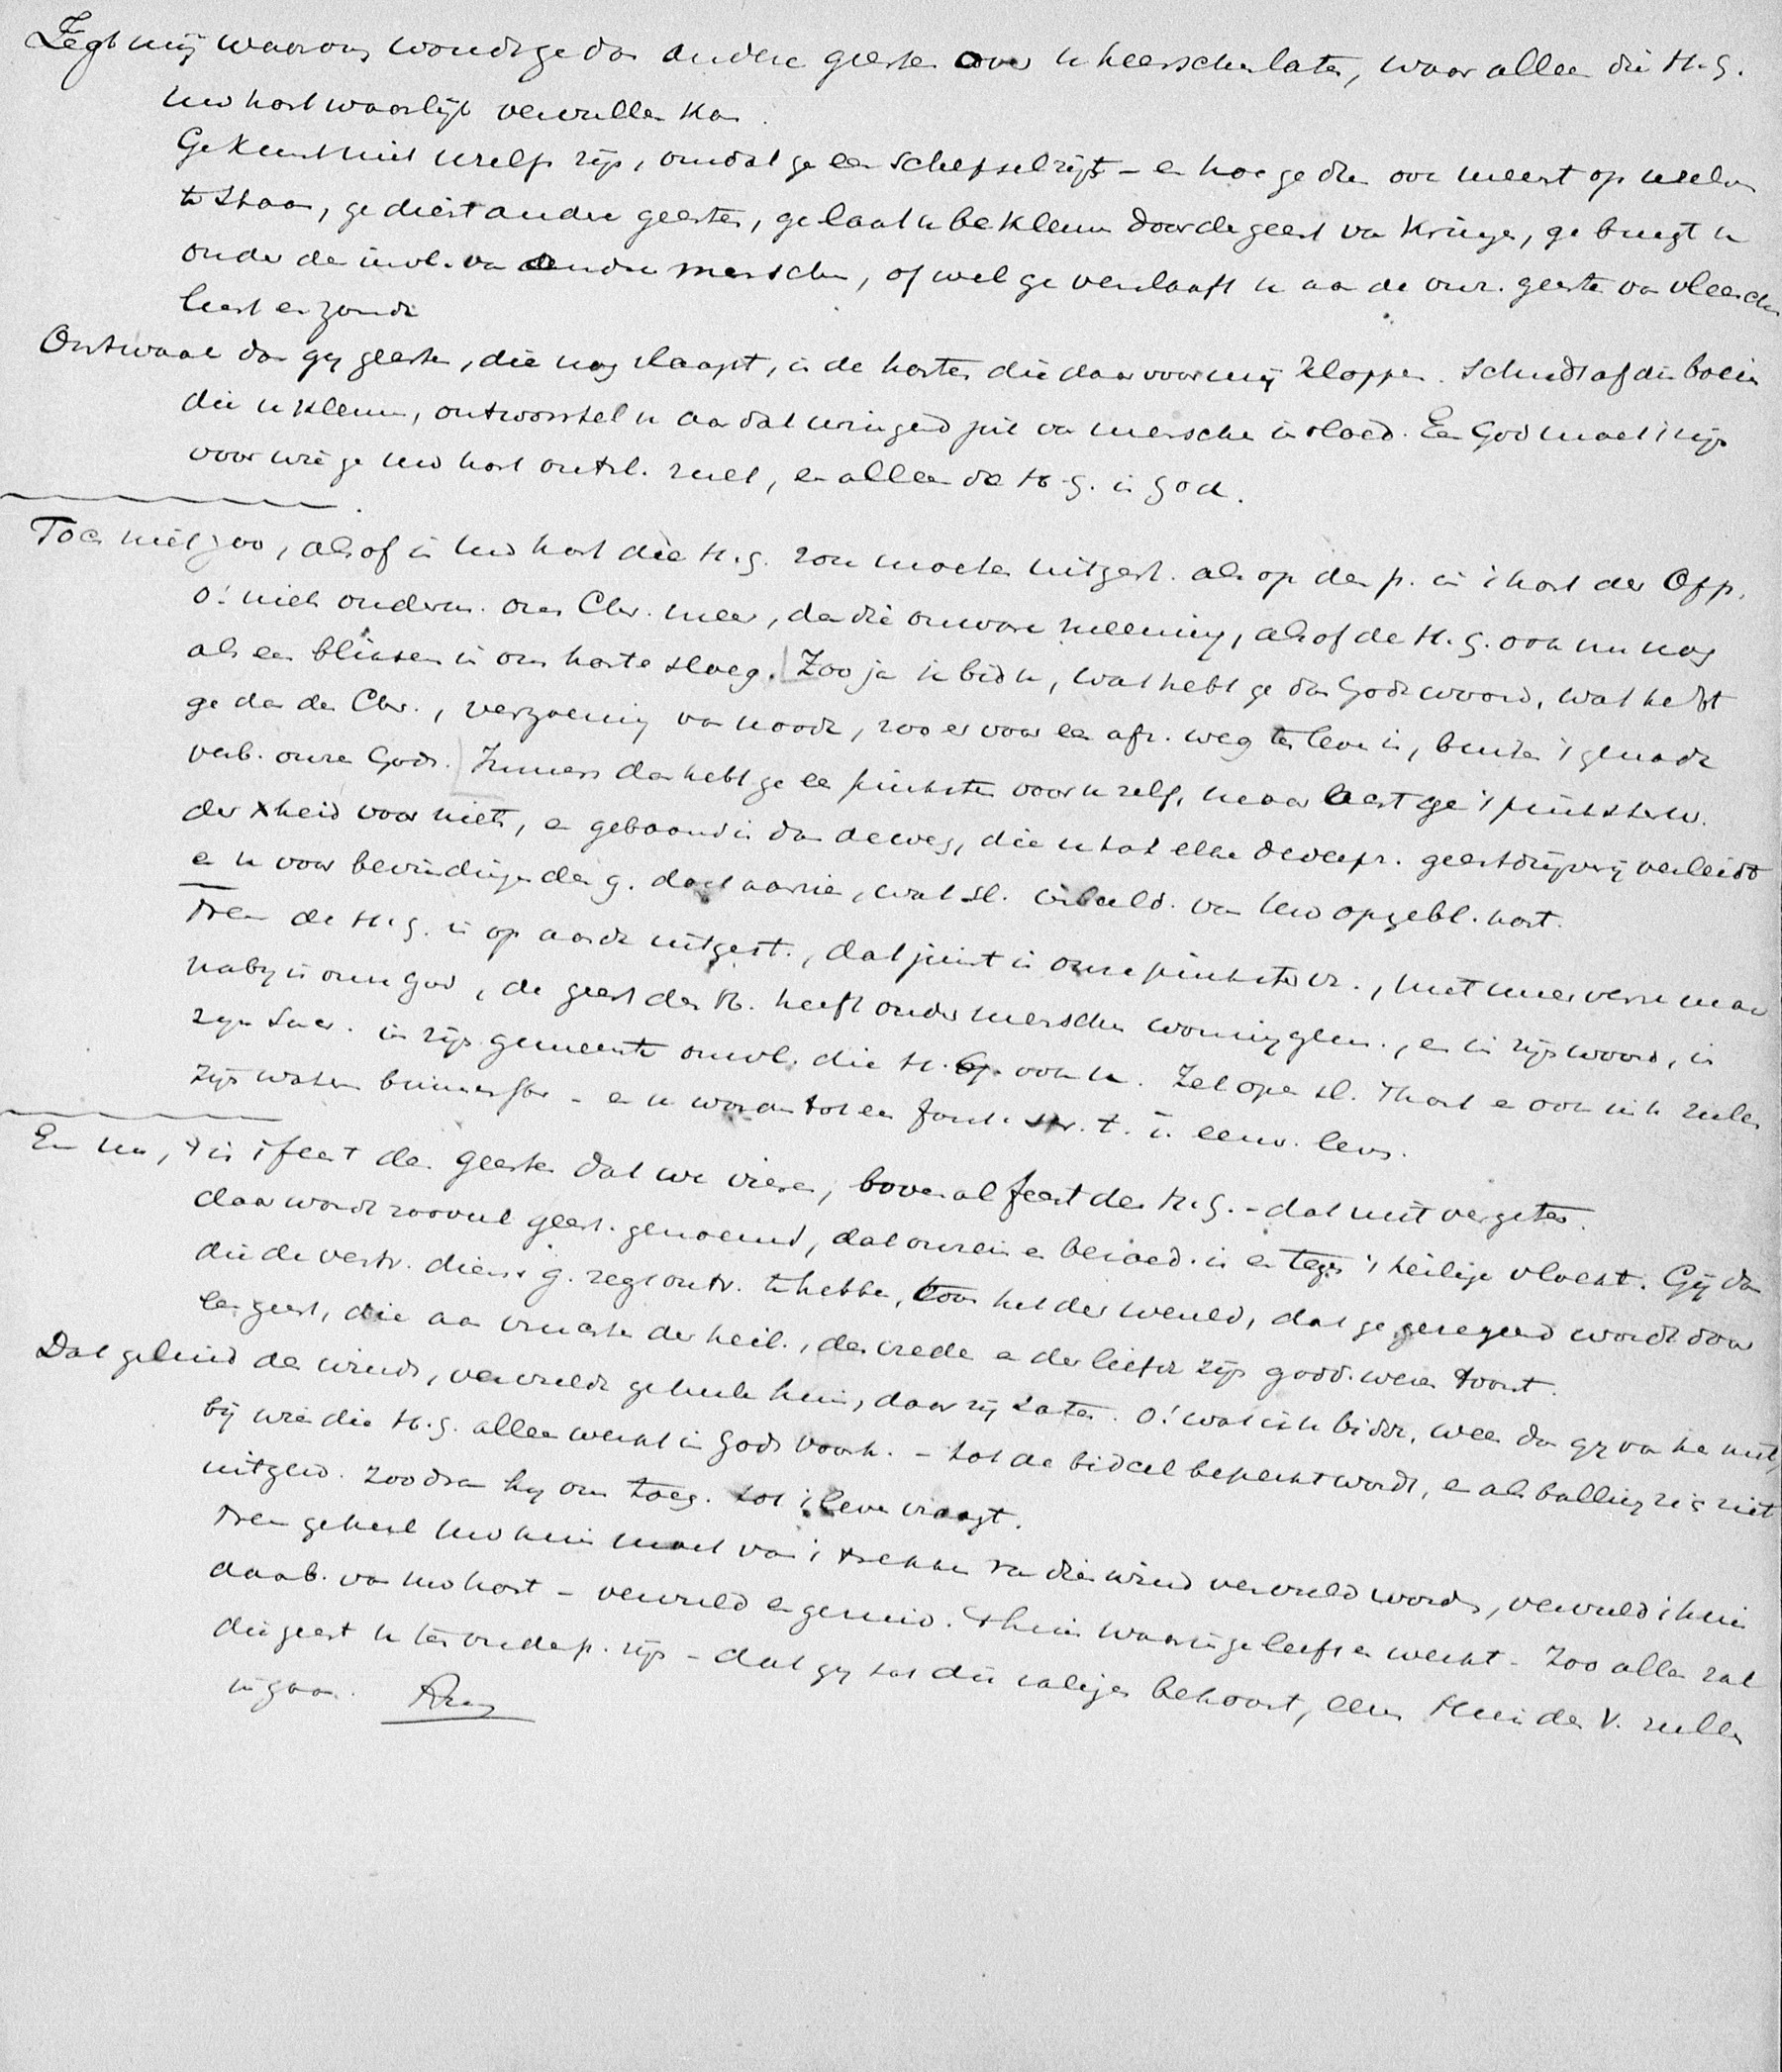 Zegt mij waarom woudt ge dan andere geesten over u heerschen laten, waar alleen die H. G.
Uw hart waarlijk vervullen kan.
Ge kunt niet uzelf zijn, omdat ge een schepsel zijt – en hoe ge dan ook meent op uzelven
te staan, ge dient andere geesten, ge laat u beklemmen door de geest van Kringen, ge buigt u
onder de invl. van andere menschen, of wel ge verslaaft u aan de onr. geesten van vleesche
lust en zonde
Ontwaak dan gij geesten, die nog slaapt, in de harten die daar voor mij kloppen. Schudt af die boeien
die u klemmen, ontworstel u aan dat wringend juk van menschen invloed. Een God moet 't zijn
voor wie ge uw hart ontsl. zult, en alleen de H. G. is God.
Toch niet zoo, alsof in uw hart die H. G. zou moeten uitgest. als op den p. in 't hart der Ap.
o! niets onderm. ons Chr. meer, dan die onware meening, alsof de H. G. ook nu nog
als een bliksem in ons harte sloeg. Zoo ja ik bid u, wat hebt ge dan Gods woord, wat hebt
ge dan den Chr., verzoening van noode, zoo er voor u een afz. weg ten leven is, buiten 't genade
verb. onzes Gods. Immers dan hebt ge een pinksten voor u zelf, maar acht ge 't pinksterw.
der Xheid voor niets, en gebaand is dan de weg, die u tot elke geestdrijverij verleidt
en u voor bevindingen des g. doet aanzien, wat sl. inbeeld. van uw opgebl. hart.
Neen de H. G. is op aarde uitgest., dat juist is onze pinkstervr., niet meer verre maar
nabij is onze God, de geest des H. heeft onder menschen woning gen., en in zijn woord, in
zijn Sacr. in zijn gemeente omvl. die H. G. ook u. Zet open sl. 't hart en ook in u zullen
zijn wateren binnenstr. – en u worden tot een font. spr. t. i. eeuw. leven.
En nu, 't is 't feest des Geestes dat we vieren, bovenal feest des H. G. – dat niet vergeten.
daar wordt zooveel geest. genoemd, dat onrein en is en tegen 't heilige vloekt. Gij dan
die de vertr. dienst g. zegt ontv. te hebben, toon het der wereld, dat ge geregeerd wordt door
een geest, die aan vruchten der heil., des vrede en der liefde zijn godd. wezen toont.
Dat geluid des winds, vervulde geheele huis, daar zij zaten. O! wat ik u bidde, wees dan gij van he niet,
bij wie die H. G. alleen werkt in Gods voorh. – tot de bidcel beperkt wordt, en als balling zich ziet
uitgew. zoodra hij om toeg. tot 't leven vraagt.
Neen geheel uw huis moet van 't trekken van dien wind vervuld worden, vervuld 't huis
van uw hart – vervuld en gereinigd. 't huis waarin ge leeft en werkt – Zoo alleen zal
die geest u ten onderp. zijn – dat gij tot die zaligen behoort, eens 't Huis des V. zullen
ingaan. Amen